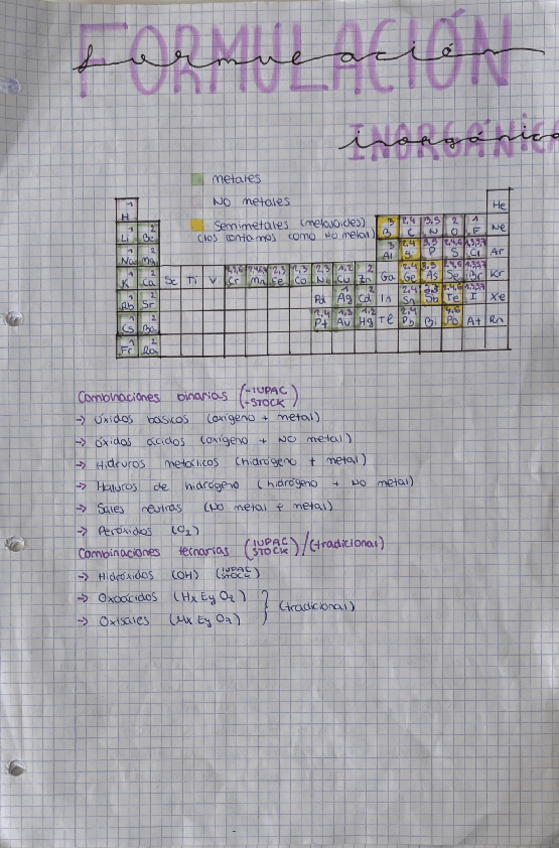 FORMULACIÓN
formulación
INORGÁNICA
inorgánica
metales
NO metales
Semimetales (metaloides)
(los contamos como no metal)
1 H He
Li 1 Be 2 3 B 2,4 C 3,5 N 2 O 1 F Ne
Na 1 Mg 2 Al 3 Si 2,4 P 3,5 S 2,4,6 Cl 1,3,5,7 Ar
K 1 Ca 2 Sc Ti V Cr 2,3,6 Mn Fe 2,3 Co 2,3 Ni 2,3 Cu 1,2 Zn 2 Ga Ge 2,4 As 3,5 Se 2,4,6 Br 1,3,5,7 Kr
Rb 1 Sr 2 Pd Ag 1 Cd 2 In Sn 2,4 Sb 3,5 Te 2,4,6 I 1,3,5,7 Xe
Cs 1 Ba 2 Pt 2,4 Au 1,3 Hg 1,2 Tl Pb 2,4 Bi Po At Rn
Fr 1 Ra 2
Combinaciones binarias (-IUPAC -STOCK)
→ Óxidos básicos (oxígeno + metal)
→ óxidos ácidos (oxígeno + NO metal)
→ Hidruros metálicos (hidrógeno + metal)
→ Haluros de hidrógeno (hidrógeno + No metal)
→ Sales neutras (No metal + metal)
→ Peróxidos (O2)
Combinaciones ternarias (IUPAC STOCK)/(tradicional)
→ Hidróxidos (OH) (IUPAC STOCK)
→ Oxoácidos (Hx Ey Oz)
→ Oxisales (Mx Ey Oz)
(tradicional)